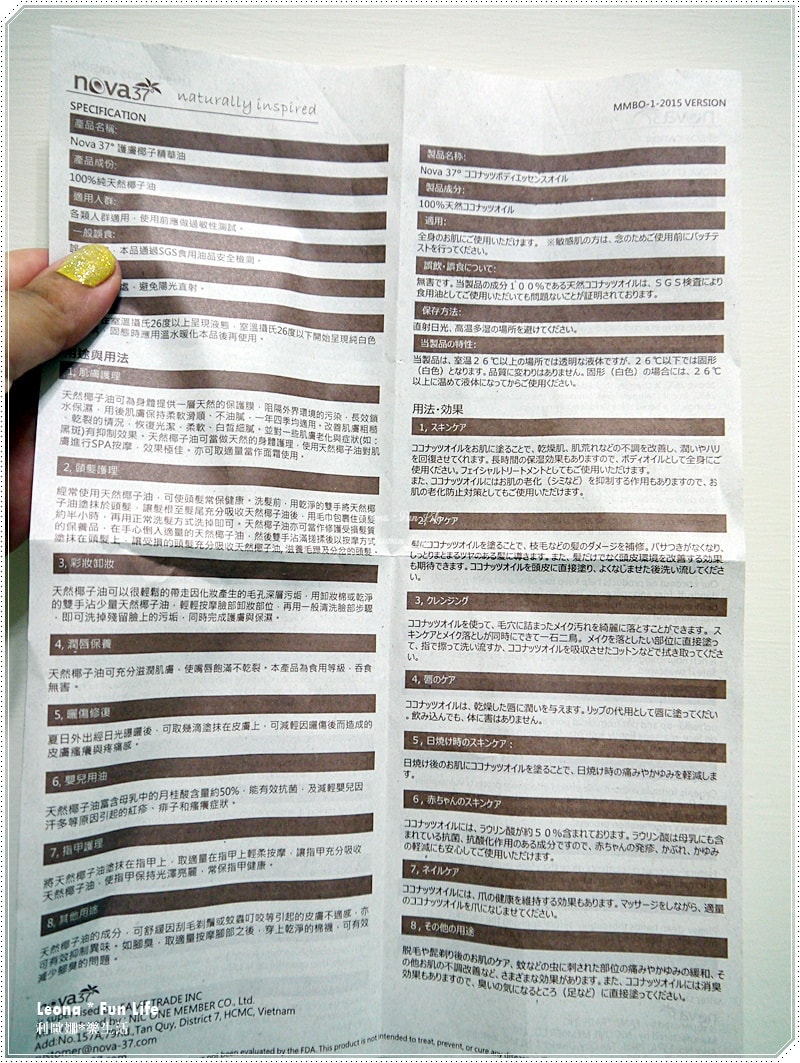 nova37°
naturally inspired
SPECIFICATION
產品名稱:
Nova 37° 護膚椰子精華油
產品成份:
100%純天然椰子油
適用人群:
各類人群適用，使用前應做過敏性測試。
一般誤食:
本品通過SGS食用油品安全檢測。
處，避免陽光直射。
室溫攝氏26度以上呈現液態，室溫攝氏26度以下開始呈現純白色
固態時應用溫水暖化本品後再使用。
用途與用法
1, 肌膚護理
天然椰子油可為身體提供一層天然的保護膜，阻隔外界環境的污染，長效鎖
水保濕，用後肌膚保持柔軟滑順、不油膩，一年四季均適用。改善肌膚粗糙
、乾裂的情況，恢復光潔，柔軟，白皙細膩。並對一些肌膚老化與症狀(如：
黑斑)有抑制效果。天然椰子油可當做天然的身體護理，使用天然椰子油對肌
膚進行SPA按摩，效果極佳。亦可取適量當作面霜使用。
2, 頭髮護理
經常使用天然椰子油，可使頭髮常保健康。洗髮前，用乾淨的雙手將天然椰
子油塗抹於頭髮，讓髮根至髮尾充分吸收天然椰子油後，用毛巾包裹住頭髮
約半小時，再用正常洗髮方式洗掉即可。天然椰子油亦可當作修護受損髮質
的保養品，在手心倒入適量的天然椰子油，然後雙手沾滿搓揉後以按摩方式
塗抹在頭髮上，讓受損的頭髮充分吸收天然椰子油,滋養毛躁及分岔的頭髮。
3, 彩妝卸妝
天然椰子油可以很輕鬆的帶走因化妝產生的毛孔深層污垢，用卸妝棉或乾淨
的雙手沾少量天然椰子油，輕輕按摩臉部卸妝部位，再用一般清洗臉部步驟
，即可洗掉殘留臉上的污垢，同時完成護膚與保濕。
4, 潤唇保養
天然椰子油可充分滋潤肌膚，使嘴唇飽滿不乾裂。本產品為食用等級，吞食
無害。
5, 曬傷修復
夏日外出經日光曝曬後，可取幾滴塗抹在皮膚上，可減輕因曬傷後而造成的
皮膚瘙癢與疼痛感。
6, 嬰兒用油
天然椰子油富含母乳中的月桂酸含量約50%，能有效抗菌，及減輕嬰兒因
汗多等原因引起的紅疹、痱子和瘙癢症狀。
7, 指甲護理
將天然椰子油塗抹在指甲上，取適量在指甲上輕柔按摩，讓指甲充分吸收
天然椰子油，使指甲保持光澤亮麗，常保指甲健康。
8, 其他用途
天然椰子油的成分，可舒緩因刮毛剃鬚或蚊蟲叮咬等引起的皮膚不適感，亦
可有效抑制異味。如腳臭，取適量按摩腳部之後，穿上乾淨的棉襪，可有效
減少腳臭的問題。
TRADE INC
NIC ONE MEMBER CO., Ltd.
Tan Quy, District 7, HCMC, Vietnam
@nova-37.com
MMBO-1-2015 VERSION
製品名称:
Nova 37° ココナッツボディエッセンスオイル
製品成分:
100%天然ココナッツオイル
適用:
全身のお肌にご使用いただけます。 ※敏感肌の方は、念のためご使用前にパッチテ
ストを行ってください。
誤飲・誤食について:
無害です。当製品の成分１００％である天然ココナッツオイルは、ＳＧＳ検査により
食用油としてご使用いただいても問題ないことが証明されております。
保存方法:
直射日光、高温多湿の場所を避けてください。
当製品の特性:
当製品は、室温２６℃以上の場所では透明な液体ですが、２６℃以下では固形
（白色）となります。品質に変わりはありません。固形（白色）の場合には、２６℃
以上に温めて液体になってからご使用ください。
用法・効果
1, スキンケア
ココナッツオイルをお肌に塗ることで、乾燥肌、肌荒れなどの不調を改善し、潤いやハリ
を回復させてくれます。長時間の保湿効果もありますので、ボディオイルとして全身にご
使用ください。フェイシャルトリートメントとしてもご使用いただけます。
また、ココナッツオイルにはお肌の老化（シミなど）を抑制する作用もありますので、お
肌の老化防止対策としてもご使用いただけます。
2, ヘアケア
髪にココナッツオイルを塗ることで、枝毛などの髪のダメージを補修。パサつきがなくなり、
しっとりまとまるツヤのある髪に導きます。また、髪だけでなく頭皮環境を改善する効果
も期待できます。ココナッツオイルを頭皮に直接塗り、よくなじませた後洗い流してくださ
い。
3, クレンジング
ココナッツオイルを使って、毛穴に詰まったメイク汚れを綺麗に落とすことができます。ス
キンケアとメイク落としが同時にできて一石二鳥。メイクを落としたい部位に直接塗っ
て、指で擦って洗い流すか、ココナッツオイルを吸収させたコットンなどで拭き取ってくださ
い。
4, 唇のケア
ココナッツオイルは、乾燥した唇に潤いを与えます。リップの代用として唇に塗ってくださ
い。飲み込んでも、体に害はありません。
5, 日焼け時のスキンケア:
日焼け後のお肌にココナッツオイルを塗ることで、日焼け時の痛みやかゆみを軽減しま
す。
6, 赤ちゃんのスキンケア
ココナッツオイルには、ラウリン酸が約５０％含まれております。ラウリン酸は母乳にも含
まれている抗菌、抗酸化作用のある成分ですので、赤ちゃんの発疹、かぶれ、かゆみ
の軽減にも安心してご使用いただけます。
7, ネイルケア
ココナッツオイルには、爪の健康を維持する効果もあります。マッサージをしながら、適量
のココナッツオイルを爪になじませてください。
8, その他の用途
脱毛や髭剃り後のお肌のケア、蚊などの虫に刺された部位の痛みやかゆみの緩和、そ
の他お肌の不調改善など、さまざまな効果があります。また、ココナッツオイルには消臭
効果もありますので、臭いの気になるところ（足など）に直接塗ってください。
not been evaluated by the FDA. This product is not intended to treat, prevent, or cure any
Leona * Fun Life
利歐娜*樂生活